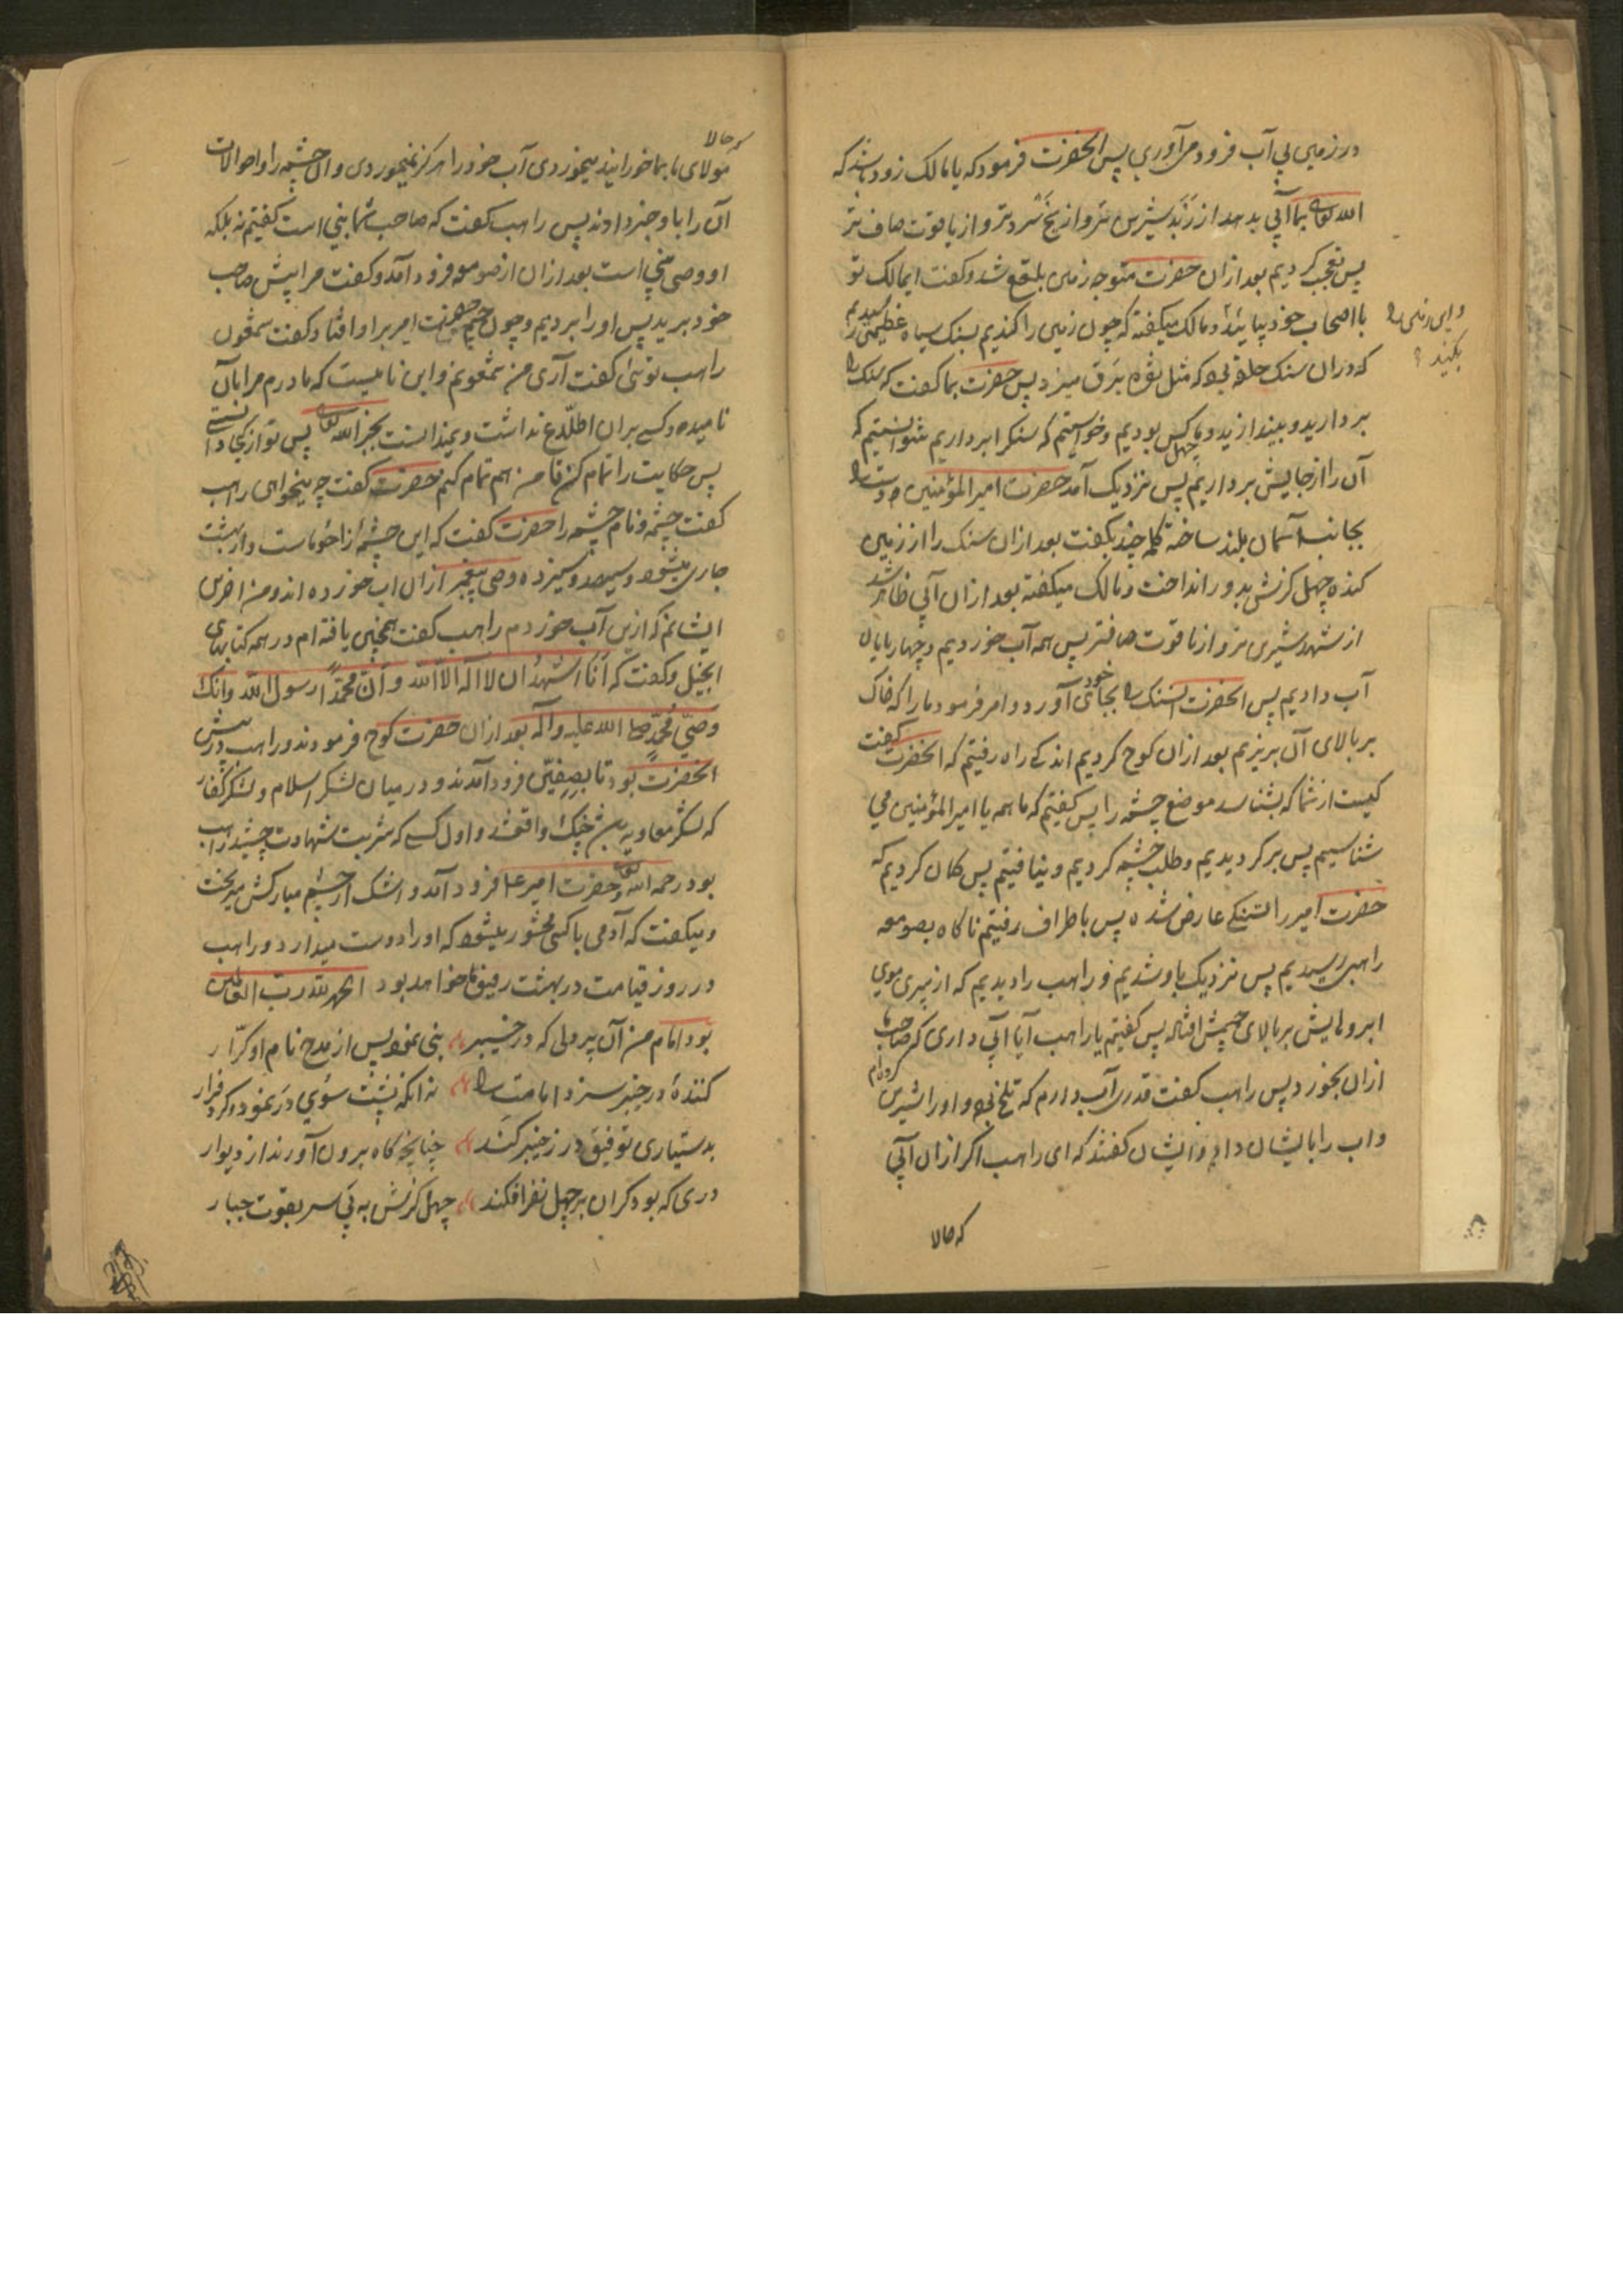 در زمین بی آب فرود می آوری پس انحضرت فرمود که یا مالک زود باشد که
الله تعالی بما آبی بدهد از زبد شیرین تر و از یخ سرد تر و از یاقوت صاف تر
پس تعجب کردیم بعد ازان حضرت متوجه زمین بلقع شد و کفت ایمالک تو
با اصحاب خود بیائید و مالک میکفته که چون زمین را کندیم بسنک سیاه عظیمی رسیدیم
واین زمین را بکنید
که دران سنک حلقه بود که مثل نقره برق میزد پس حضرت بما کفت که سنک را
بردارید و بیندازید و ما چهل کس بودیم و خواستیم که سنکرا برداریم نتوانستیم که
آن را از جایش برداریم پس نزدیک آمد حضرت امیر المؤمنین و دست را
بجانب آسمان بلند ساخته کلمه چند بکفت بعد ازان سنک را از زمین
کنده چهل کزش بدور انداخت و مالک میکفته بعد ازان آبی ظاهر شد
از شهد شیرین تر و از یاقوت صافتر پس همه آب خوردیم و چهارپایان
آب دادیم پس انحضرت انسنک را بجای خود آورد و امر فرمود ما را که خاک
بر بالای آن بریزیم بعد ازان کوچ کردیم اندکی راه رفتیم که انحضرت کفت
کیست از شما که بشناسد موضع چشمه را پس کفتیم که ما همه یا امیر المؤمنین می
شناسیم پس بر کردیدیم و طلب چشمه کردیم و نیافتیم پس کمان کردیم که
حضرت امیر را تشنکی عارض شده پس باطراف رفتیم ناکاه بصومعه
راهبی رسیدیم پس نزدیک باو شدیم و راهب را دیدیم که از پیری موی
ابروهایش بر بالای چشمش افتاده پس کفتیم یا راهب آیا آبی داری که صاحب ما
ازان بخورد پس راهب کفت قدری آب دارم که تلخ بود و اورا شیرین کرده ام
و اب را بایشان داد و ایشان کفتند که ای راهب اکر ازان آبی
که حالا
که حالا
مولای ما بما خورانید میخوردی آب خود را هرکز نمیخوردی و آن چشمه را و احوالات
آن را باو خبر دادند پس راهب کفت که صاحب شما نبی است کفتیم نه بلکه
او وصی نبی است بعد ازان از صومعه فرود آمد و کفت مرا پیش صاحب
خود برید پس اورا بردیم و چون چشم حضرت امیر بر او افتاد کفت شمعون
راهب توئی کفت آری من شمعونم و این نامیست که مادرم مرا بآن
نامیده و کسی بران اطلاع نداشت و نمیدانست بجز الله تعالی پس تو از کجا دانستی
پس حکایت را تمام کن تا من هم تمام کنم حضرت کفت چه میخواهی راهب
کفت چشمه و نام چشمه را حضرت کفت که این چشمه از احوماست و از بهشت
جاری میشود و سیصد و سیزده وصی پیغمبر ازان اب خورده اند و من اخرین
ایشانم که ازین آب خوردم راهب کفت همچنین یافته ام در همه کتابهای
انجیل و کفت که أنا اشهد ان لا اله الا الله و أن محمدا رسول الله و انک
وصی محمد صلی الله علیه و آله بعد ازان حضرت کوچ فرمودند و راهب در پیش
انحضرت بود تا بصفین فرود آمدند و در میان لشکر اسلام و لشکر کفار
که لشکر معاویه جنک واقع شد و اول کسی که شربت شهادت چشید راهب
بود رحمه الله و حضرت امیر فرود آمد و اشک از چشم مبارکش میریخت
و میکفت که آدمی با کسی محشور میشود که اورا دوست میدارد و راهب
در روز قیامت در بهشت رفیق ما خواهد بود الحمد لله رب العالمین
بود امام من آن پر دلی که در خیبر نبی نمود پس از مدح نام او کرار
کنندهٔ در خیبر سزد امامت را نه انکه پشت سوی در نمود و کرد فرار
بدستیاری توفیق در ز خیبر کند چنانچه کاه برون آورند از دیوار
دری که بود کران بر چهل نفر افکند چهل کزش به پس سر بقوت جبار